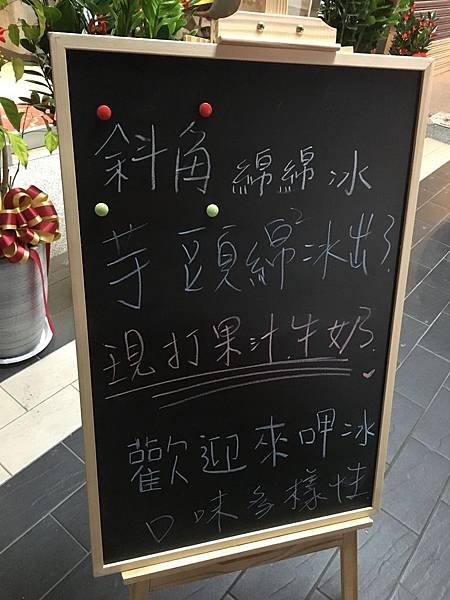 斜角綿綿冰
芋頭綿²冰出了
現打果汁.牛奶.
歡迎來呷冰
口味多樣性